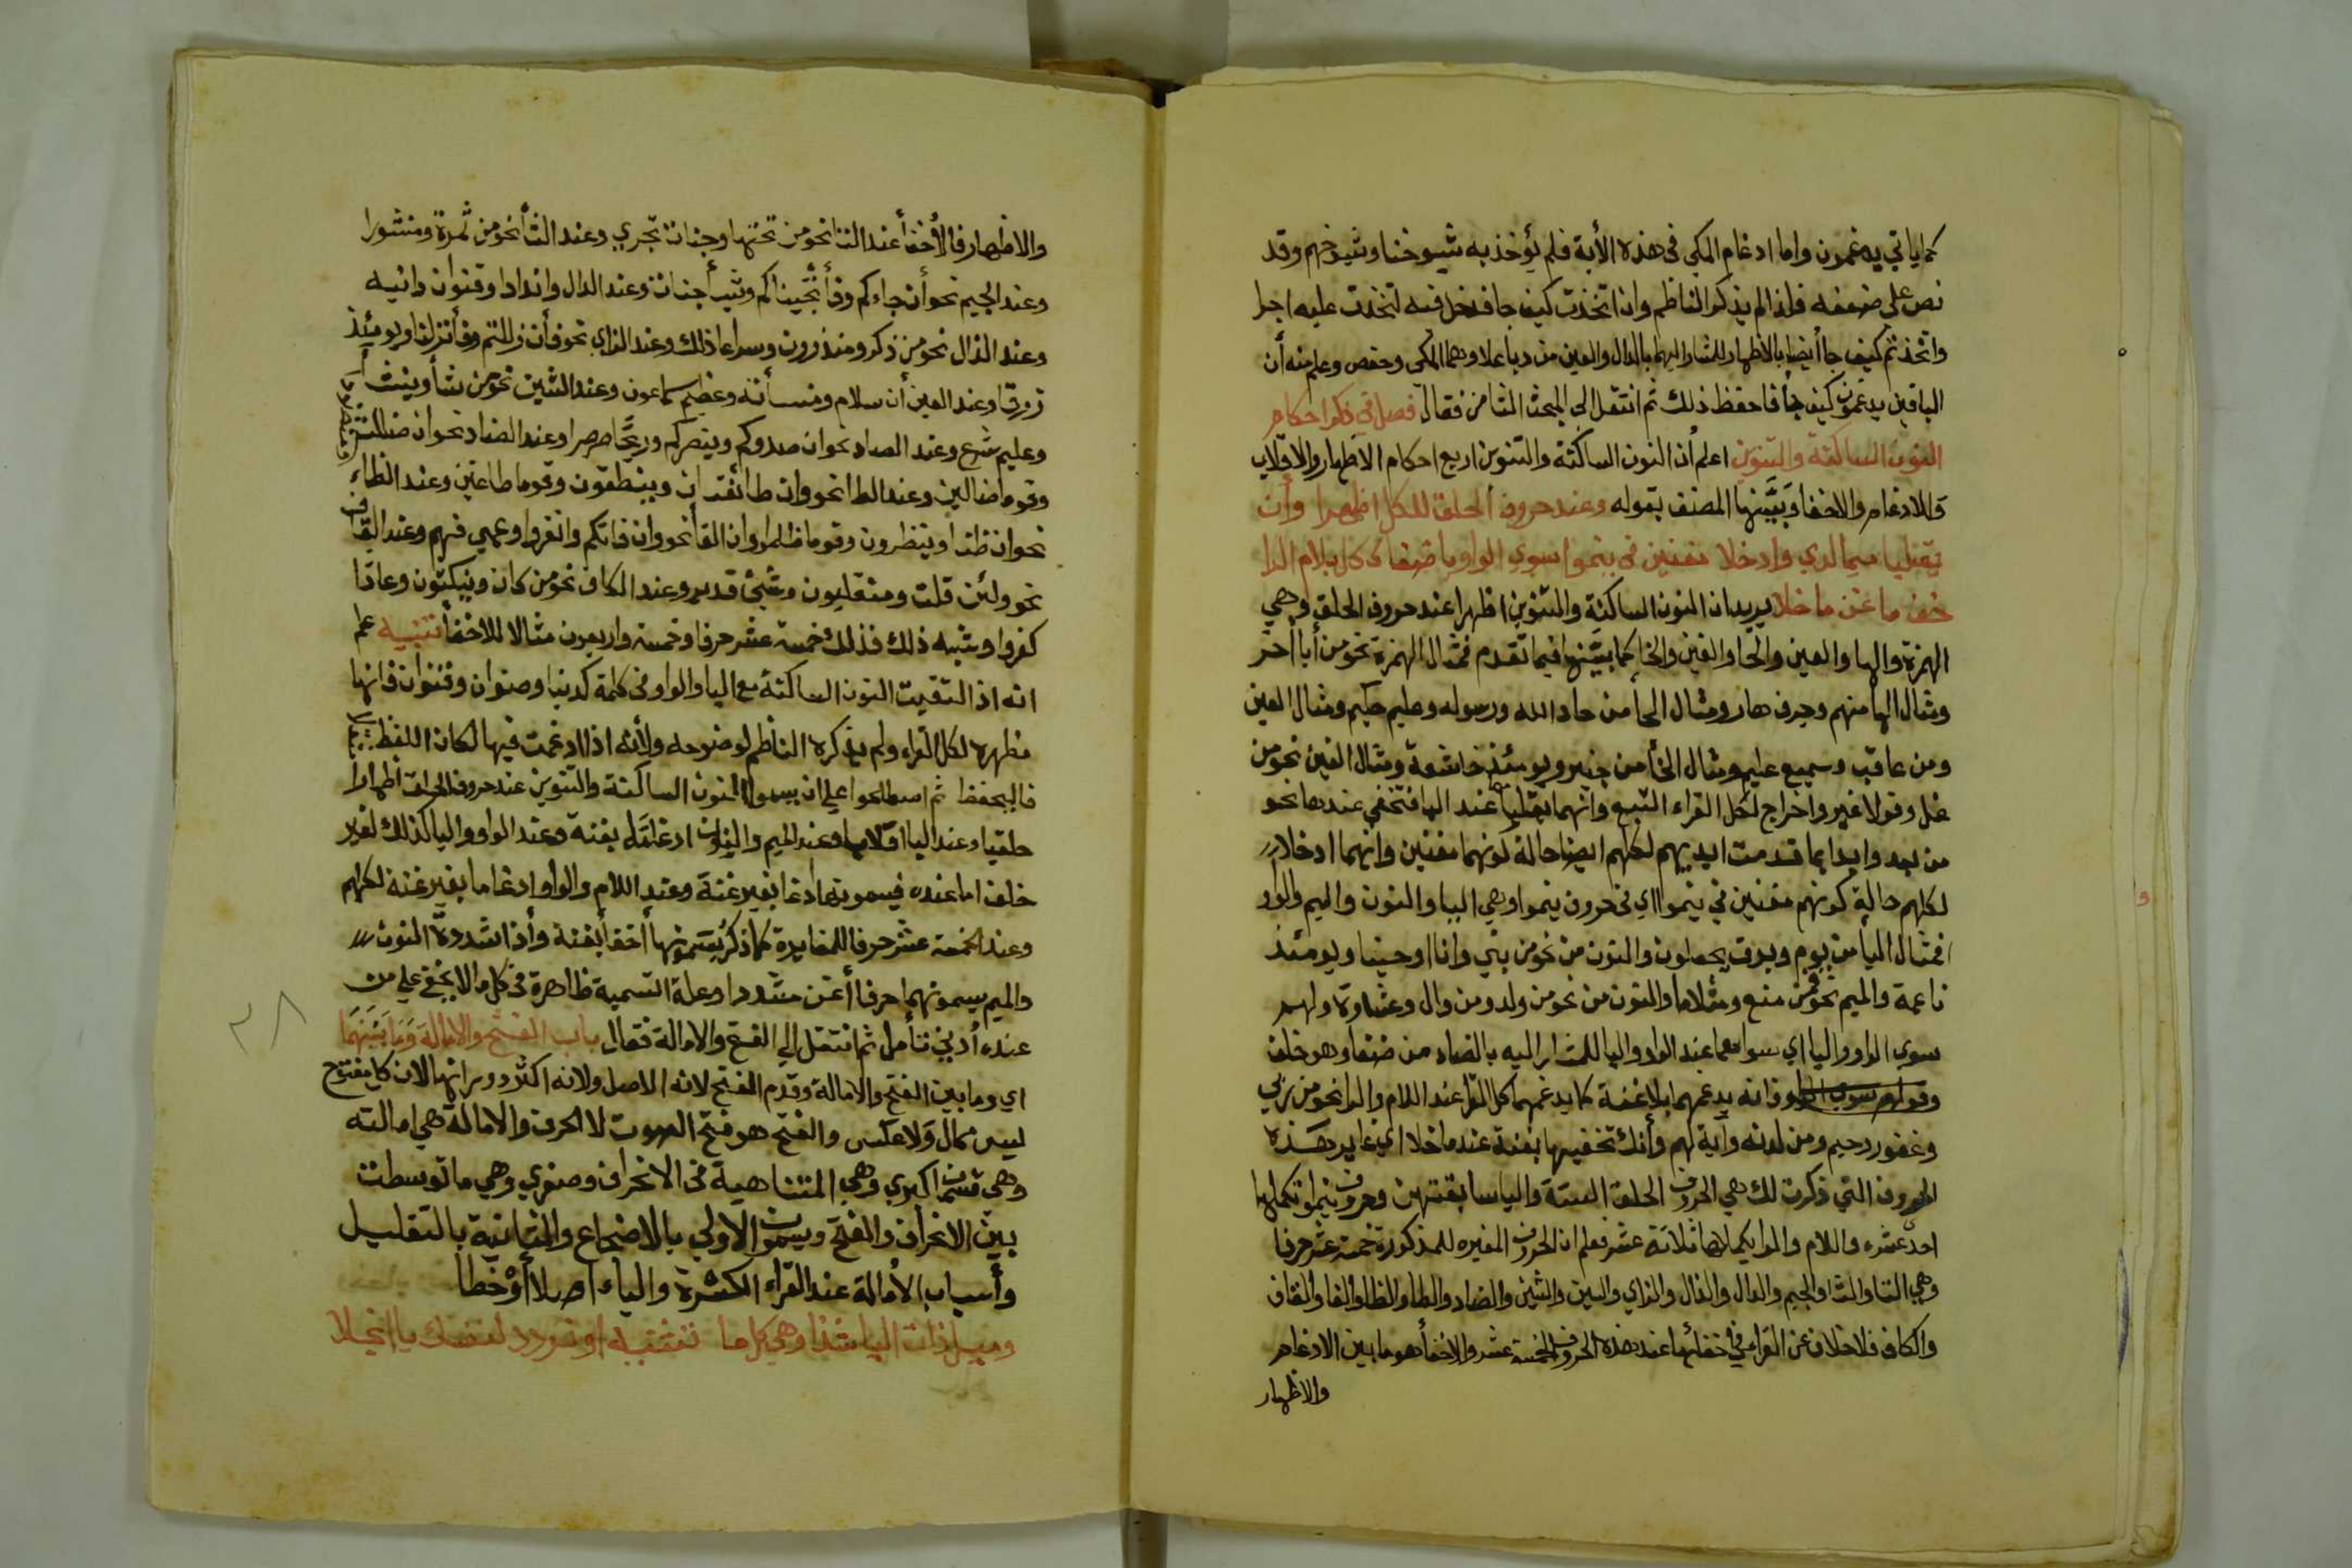 كما ياتي يدغمون واما ادغام المكي في هذه الأية فلم يؤخذ به شيوخنا وشيوخهم وقد
نص على ضعفه فلذا لم يذكر الناظم وان اتخذت كيف جا فدخل فيه لتخذت عليه اجرا
واتخذتم كيف جا أيضا بالأظهار للمشار اليهما بالدال والعين من دبا علا وهما المكي وحفص وعلم منه أن
الباقين يدغمون كيف جأ فاحفظ ذلك ثم انتقل الى المبحث الثامن فقال فصل في ذكر احكام
النون الساكنة والتنوين اعلم أن النون الساكنة والتنوين اربع احكام الاظهار والاقلاب
والادغام والاخفا وبينها المصنف بقوله وعند حروف الحلق للكل اظهرا وأن
يقلبا ميما لدي وادخلا مغنين في ينموا سوي الواو يا ضفا كل بلام الرا
خف ما غن ما خلا يريد ان النون الساكنة والتنوين اظهرا عند حروف الحلق وهي
الهمزة والها والعين والحا والغين والخا كما بينها فيما تقدم فمثال الهمزة نحو من أبا أخر
ومثال الها منهم وجرف هار ومثال الحأ من حاد الله ورسوله وعليم حكيم ومثال العين
ومن عاقب وسميع عليم ومثال الخأ من خير ويومئذ خاشعة ومثال الغين نحو من
غل وقولا غير واخراج لكل القراء السبع وانهما يقلبا عند البا فتخفي عندها نحو
من بعد وابدا بما قدمت ايديهم لكلهم ايضا حالة كونهما مغنين وانهما ادخلا
لكلهم حالة كونهم مغنين في ينموا اي في حروف ينموا وهي اليا والنون والميم والواو
فمثال اليأ من يوم وبرق يجعلون والنون من نحو من نبي وانا اوحينا ويومئذ
ناعمة والميم نحو فمن منع ومثلا ما والنون من نحو من ولد ومن وال وغشاوة ولهم
سوي الواو واليا اي سواهما عند الواو واليا للمشار اليه بالضاد من ضفا وهو خلف
فانه يدغمهما بلا غنة كما يدغمهما كل القرا عند اللام والرا نحو من ربي
وغفور رحيم ومن لدنه وآية لهم وأنك تخفيها بغنة عند ما خلا اي غاير هذه
الحروف التي ذكرت لك وهي الحروف الحلق الستة والبا سابقتهن وحروف ينموا تكملها
احد عشرة واللام والرا يكملاها ثلاثة عشر فعلم ان الحروف المغيره للمذكورة خمسة عشر حرفا
وهي التا والثا والجيم والدال والذال والزاي والسين والشين والضاد والطا والظا والفا والقاف
والكاف فلا خلاف عن القراء في خفائها عند هذه الحروف الخمسة عشر والاخفأ هو ما بين الادغام
والاظهار
والاظهار فالأخفأ عند التا نحو من تحتها وجنات تجري وعند الثأ نحو من ثمرة ومنثورا
وعند الجيم نحو أن جاءكم وفأنجيناكم وشيأ جنات وعند الدال وانداد وقنوان دانيه
وعند الذال نحو من ذكر ومنذرون وسراعا ذلك وعند الزاي نحو فأن زللتم وفأنزلنا ويومئذ
زرقا وعند السين أن سلام ومنسأته وعظيم سماعون وعند الشين نحو من شأ وينشأ
وعليم شرع وعند الصاد نحوان صدوكم وينصركم وريحا صرصرا وعند الضاد نحوان ضللت
وقوما ضالين وعند الطا نحو وان طائفتان وينطقون وقوما طاغين وعند الظاء
نحوان ظنا وينظرون وقوما ظلموا وان الفا نحو وان فاتكم وانفروا وعمي فهم وعند القاف
نحو ولئن قلت ومنقلبون وشيئ قدير وعند الكاف نحو من كان وينكثون وعادا
كفروا وشبه ذلك فذلك خمسة عشر حرفا وخمسة واربعون مثالا للاخفأ تنبيه علم
انه اذا التقيت النون الساكنة مع اليا والواو في كلمة كدنيا وصنوان وقنوان فانها
مظهرة لكل القراء ولم يذكره الناظم لوضوحه ولأنه اذا ادغمت فيها لكان اللفظ
فاليحفظ ثم اصطلحوا علي ان يسموا النون الساكنة والتنوين عند حروف الحلق اظهارا
حلقيا وعند البا اقلابا وعند الميم والنون ادغاما بغنة وعند الواو واليا كذلك لغير
خلف اما عنده فيسمونها ادغا بغير غنة وعند اللام والواو ادغاما بغير غنة لكلهم
وعند الخمسة عشر حرفا للمغايرة كما ذكر يسمونها أخفأ بغنة وأذا شددة النون
والميم يسمونهما حرفا أغن مشددا وعلة التسمية ظاهرة في كل ما لا يخفي علي من
عنده أدني تأمل ثم انتقل الي الفتح والامالة فقال باب الفتح والامالة وما بينهما
اي وما بين الفتح والامالة وقدم الفتح لانه الاصل ولانه اكثر دورانها لان كل مفتوح
ليس ممال ولا عكس والفتح هو فتح الصوت لا الحرف والامالة هي امالته
وهي قسمان اكبري وهي المتناهية في الانحراف وصغري وهي ما توسطت
بين الانحراف والفتح ويسمون الاولي بالاضجاع والثانية بالتقليل
وأسباب الأمالة عند القراء الكسرة والياء اصلا أو خطا
وميل ذات اليا شذا وهي كل ما تثنيه او تردد لنفسك يا انجلا
٣٨